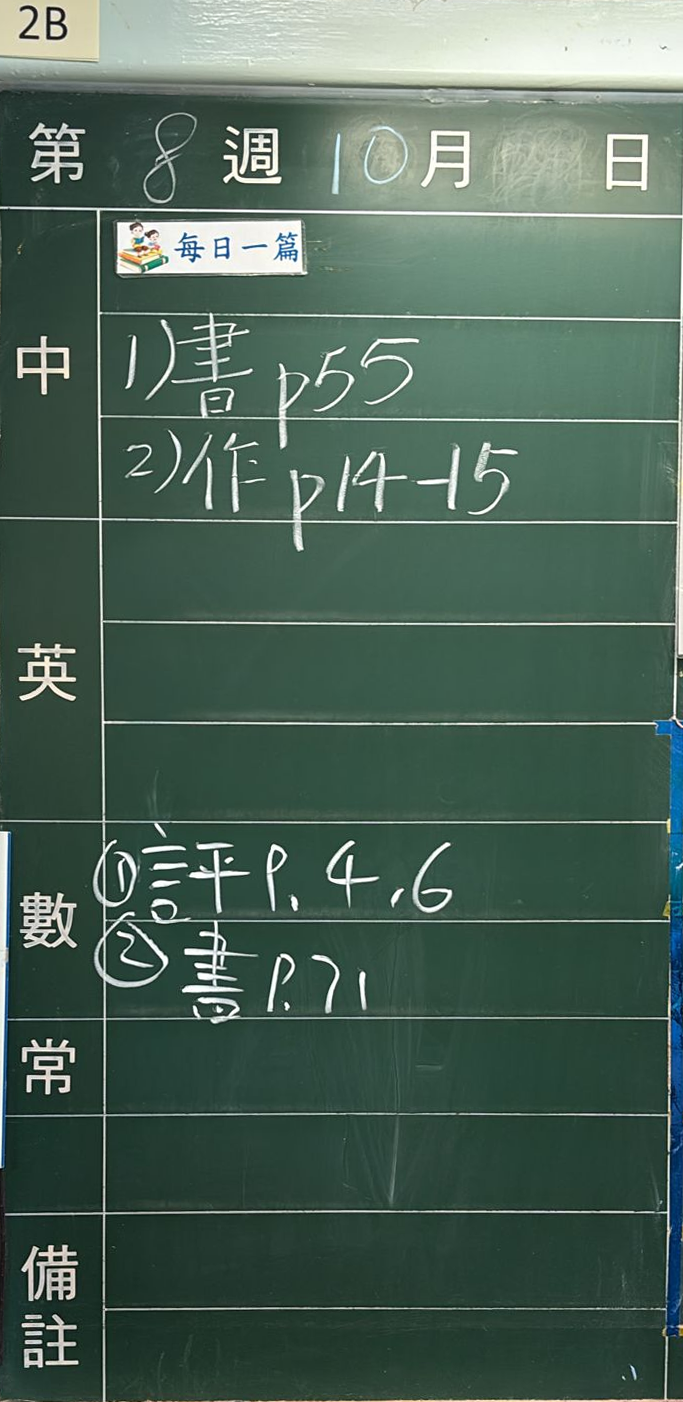 2B
第 8 週 10 月 日
每日一篇
中
1) 書 p55
2) 作 p14-15
英
數
① 評 P. 4, 6
② 書 P. 71
常
備註